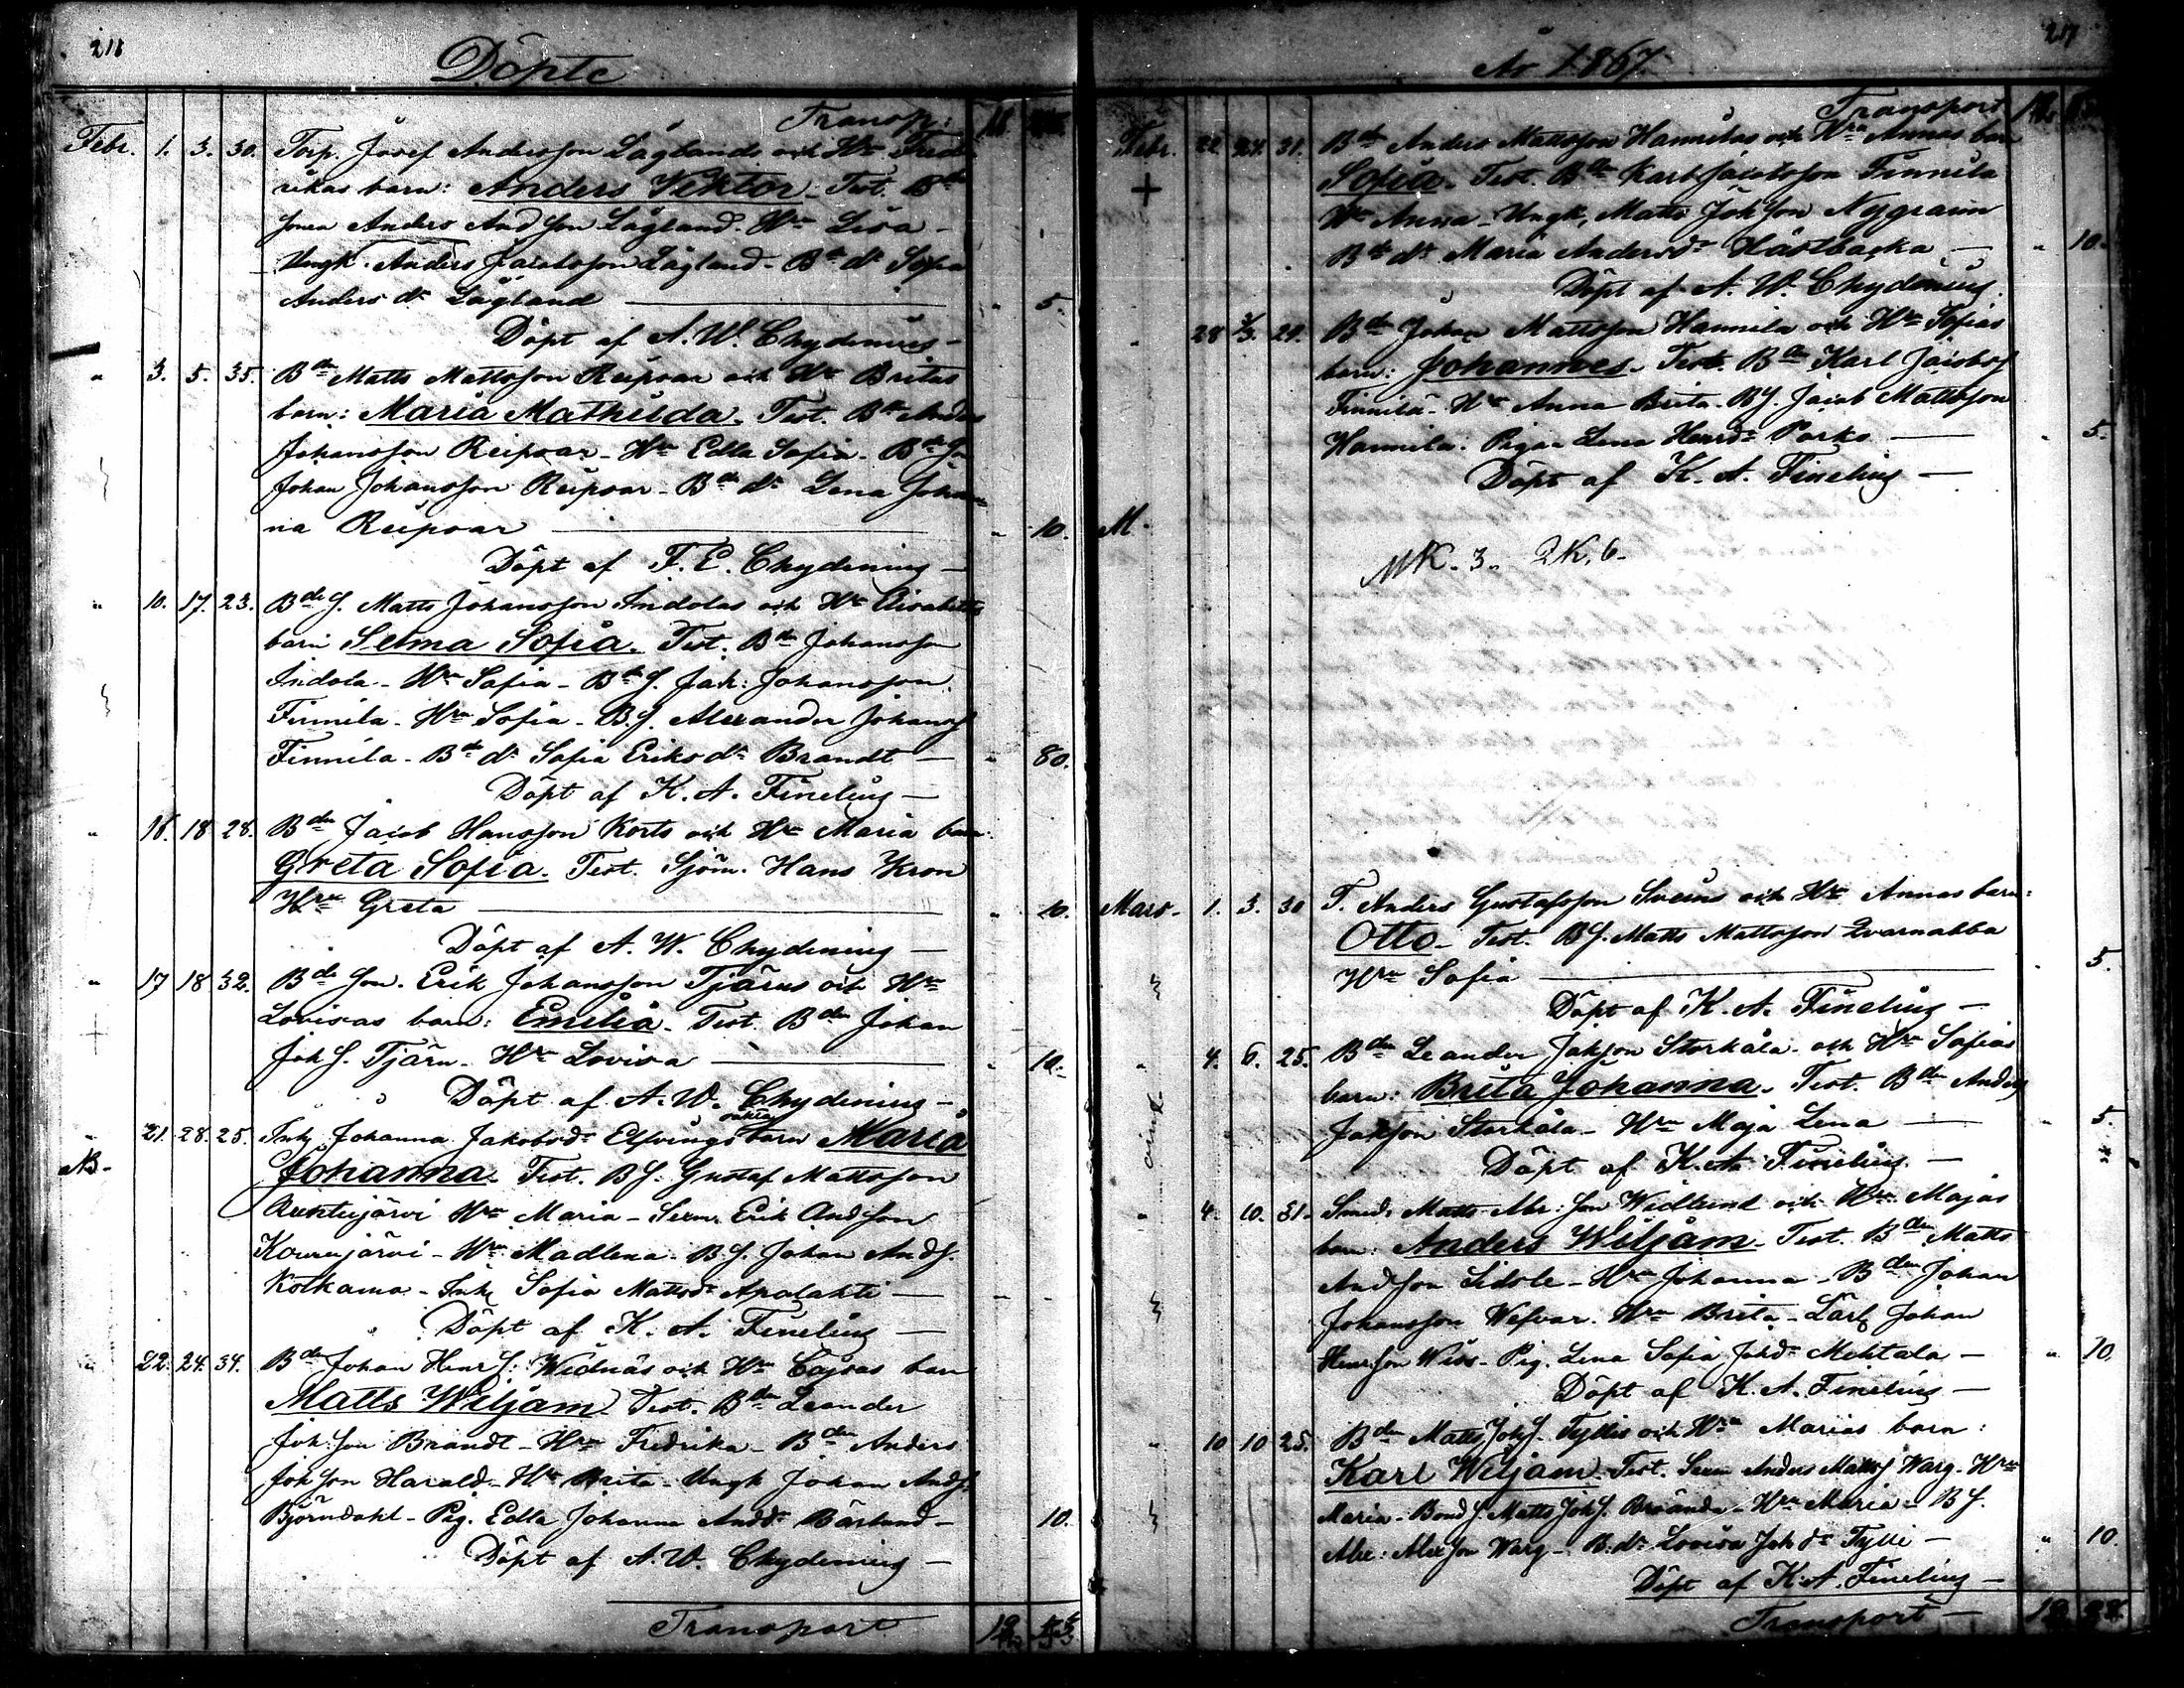 Döpte
Transp:
Febr. 1. 3. 30. Torp. Josef Andersson Lågland och Hu Fred-
rikas barn: Anders Viktor. Test. Bde
sonen Anders Andsson Lågland. Hu Lisa -
Ungk. Anders Jacobsson Lågland - Bde dr Sofia
Anders dr Lågland - 5.
Döpt af A. W. Chydenius -
" 3. 5. 35. Bdn Matts Mattsson Reipsar och Hu Britas
barn: Maria Mathilda. Test. Bdn Anders
Johansson Reipsar - Hu Edla Sofia - Bde
Johan Johansson Reipsar - Bde dr Lena Johan-
na Reipsar - 10.
Döpt af F. E. Chydenius -
" 10. 17. 23. Bde S. Matts Johansson Indolas och Hu Elisabeths
barn Selma Sofia. Test. Bdn Johansson
Indola - Hu Sofia - Bde S. Jak: Johansson
Finnila - Hu Sofia - B.S. Alexander Johanss
Finnila - Bde dr Sofia Eriks dr Brandt - 80.
Döpt af K. A. Fineling -
" 16. 18. 28. Bdn Jacob Hansson Korts och Hu Maria barn
Greta Sofia. Test. Sjöm. Hans Kron
Hru Greta - 10.
Döpt af A. W. Chydenius -
" 17 18 32. Bde son. Erik Johansson Tjärus och Hru
Lovisas barn: Emilia. Test. Bdn Johan
Joh S. Tjärn - Hu Lovisa - 10.
Döpt af A. W. Chydenius -
" 21. 28. 25. Ink. Johanna Jakobsdr Elfvings oäkta barn Maria
NB. Johanna. Test. B.S. Gustaf Mattsson
Hru Maria - Erik Andsson
- Hru Madlena - B.S. Johan Ands.
Kolkama - Ink. Sofia Mattsdr Apalahti -
Döpt af K. A. Fineling -
" 22. 24. 34. Bdn Johan Henr S. Widnäs och Hu Cajsas barn
Matts Wiljam. Test. Bdn Leander
Joh. Son Brandt - Hru Fredrika - Bdn Anders
Joh Son Harald - Hu Brita - Ungk Johan Ands.
Björndahl - Pig. Edla Johanna Andsdr Bärland - 10.
Döpt af A. W. Chydenius -
Transport
År 1867.
Transport
Febr. 22. 24. 31. Bdn Anders Mattsson Hannilas och Hru Annas barn
+ Sofia. Test. Bdn Karl Jacobsson Finnila
Hu Anna - Ungk. Matts Joh Son Nygrann
Bde dr Maria Andersdr Hästbacka - 10.
Döpt af A. W. Chydenius.
28 2/3. 29. Bdn Johan Mattsson Hannila och Hru Sofias
barn: Johannes. Test. Bdn Karl Jacobss
Finnilä - Hu Anna Brita - B.S. Jacob Mattsson
Hannila. Pigan Lena Henrdr Porko - 5.
Döpt af K. A. Fineling -
M.
MK. 3. QK. 6.
Mars. 1. 3. 30 T. Anders Gustafsson Sveins och Hru Annas barn:
Otto - Test. B.S. Matts Mattsson Qvarnabba
Hru Sofia - 5.
Döpt af K. A. Fineling -
" 4. 6. 25. Bdn Leander Jaksson Storkåla och Hru Sofias
barn: Brita Johanna. Test. Bdn Anders
Jaksson Storkåla - Hru Maja Lena - 5.
Döpt af K. A. Fineling -
" 4. 10. 31. Smed. Matts Abr: Son Widlund och Hru Majas
barn: Anders Wiljam - Test. Bdn Matts
Andsson - Hru Johanna - Bdn Johan
Johansson Wefvar. Hru Brita - Lärl. Johan
Henrson Wiss - Pig. Lena Sofia Johdr Mektala - " 10.
Döpt af K. A. Fineling -
" 10 10 25. Bdn Matts Joh S. Tyllis och Hru Marias barn:
Karl Wiljam. Test. Anders Matts Warg - Hru
Maria - Bond S. Matts Joh S. Braanda - Hru Maria - B S.
Alex: Alexson Warg - B: dr Lovisa Joh dr Tylli - " 10.
Döpt af K. A. Fineling -
Transport -